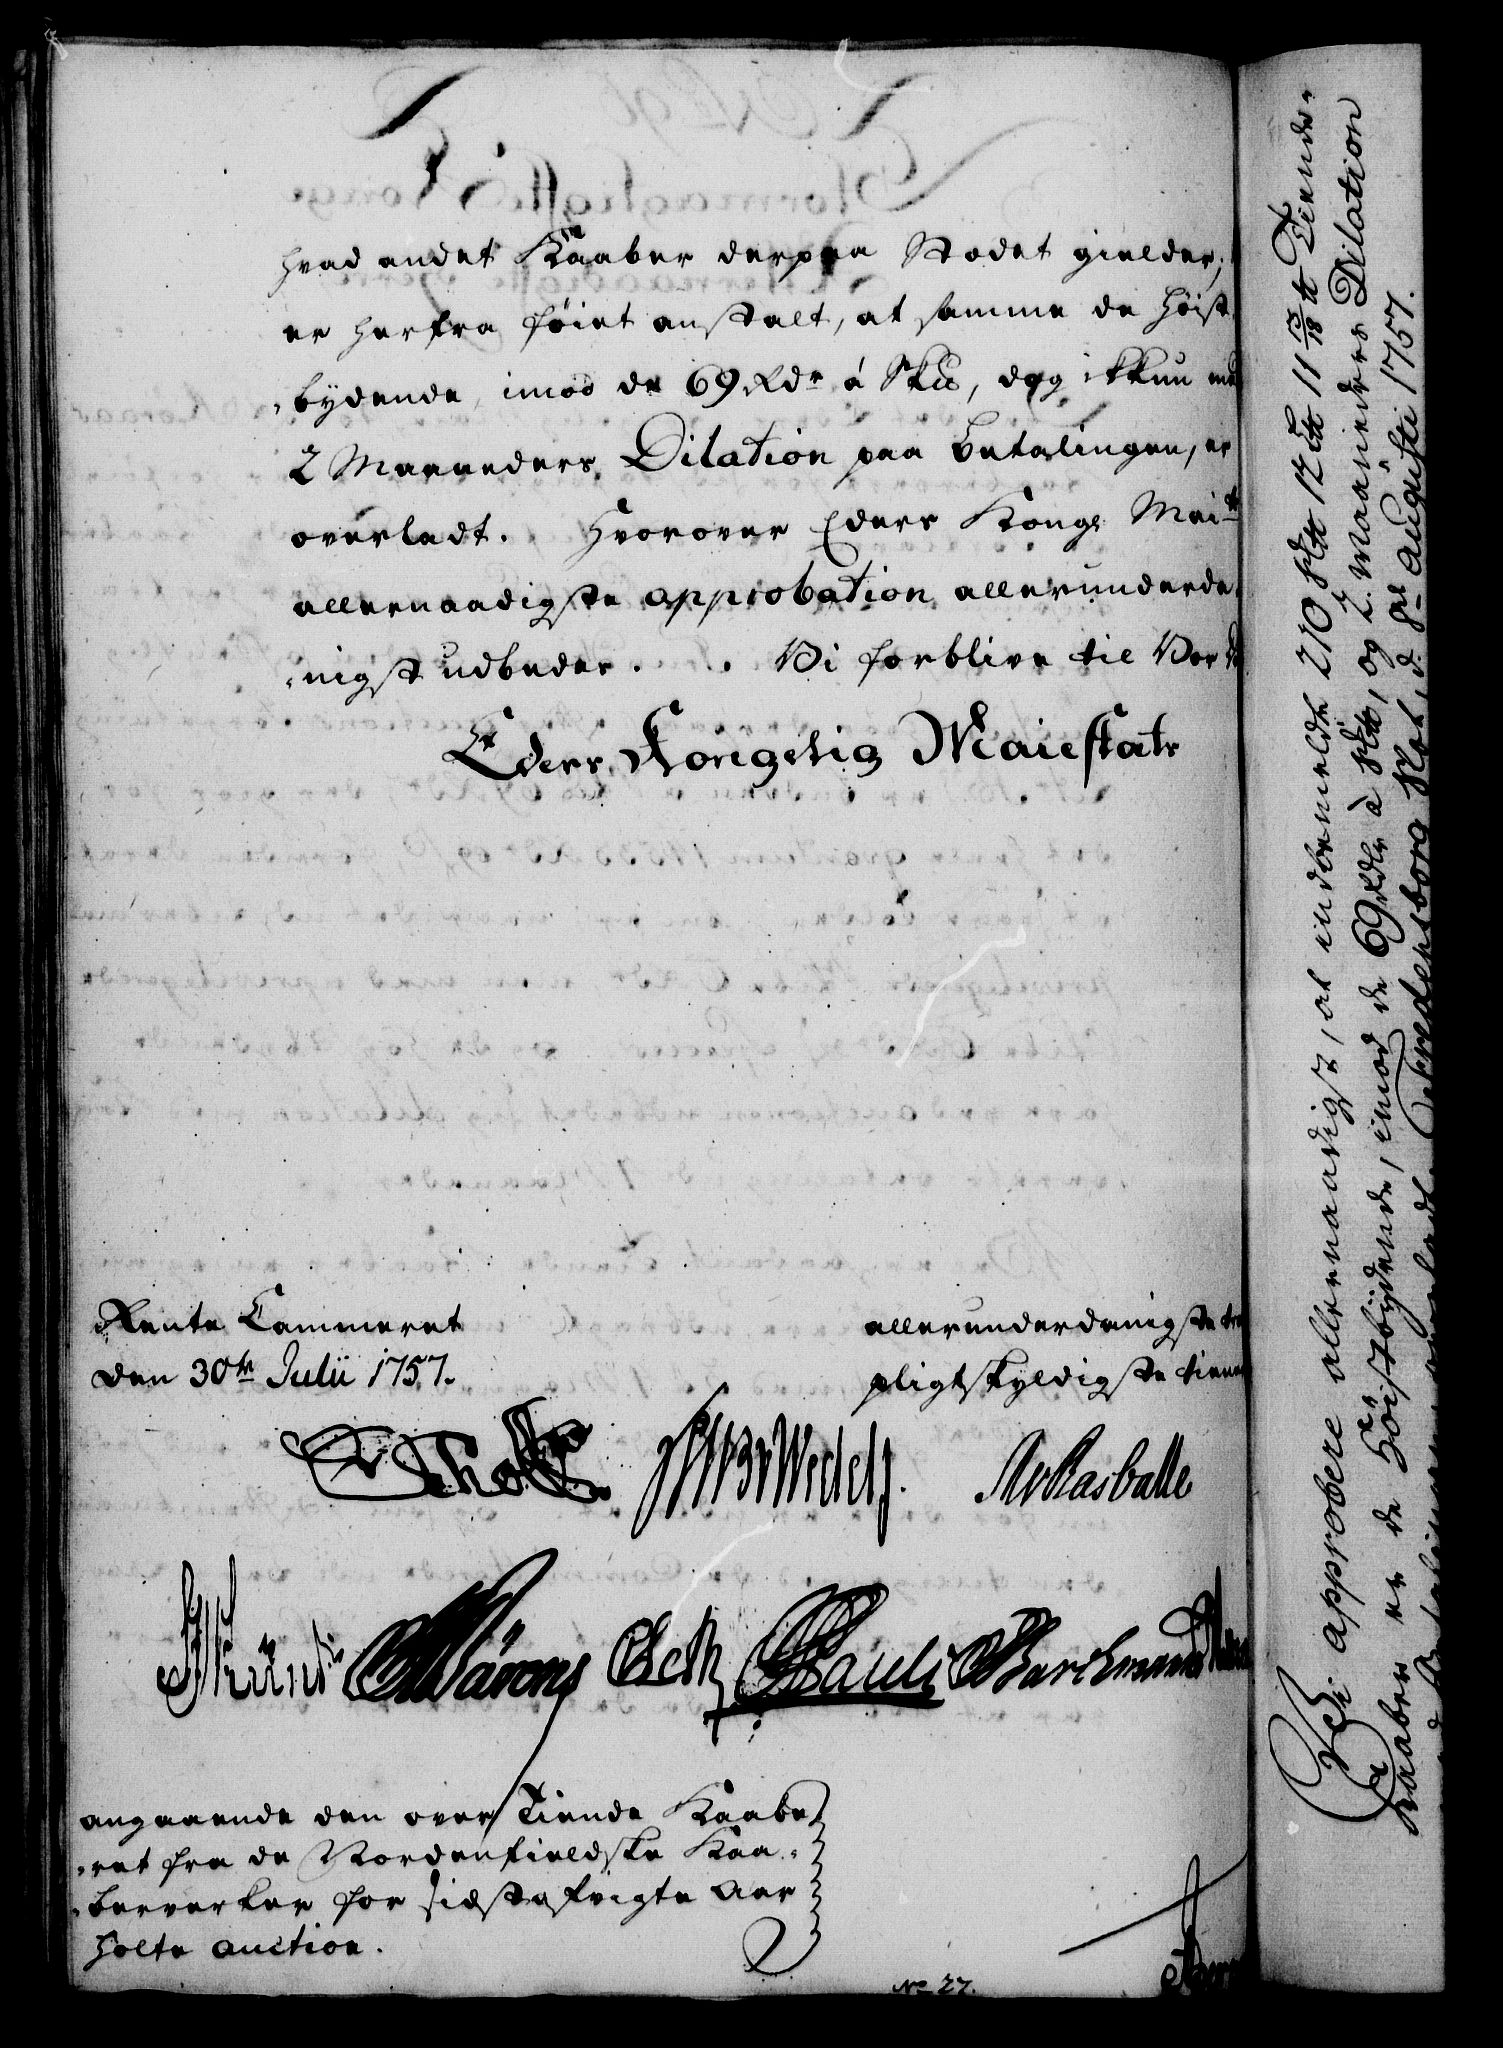 hvad andet Kaaber derpaa Stodet gielder,
er herfra föiet anstalt, at samme de höist
bydende, imod de 69 Rdr á Skũ, dog ikkun
2 Maaneders Dilation paa betalingen, er
overladt. Hvorover Eders Kongl Mai
allernaadigste approbation allerunderda
nigst udbedes. Vi forblive til Vor
Eders Kongelig Maiestæts
Rente Cammeret
den 30te Julii 1757.
allerunderdanigste
pligtskyldigste
Wedel
angaaende den over Tiende Kaabe
ret fra de Nordenfieldske Kaa
berverker for sidstafvigte Aar
holte auction.
No 27.
Vi approbere allernaadigst, at indbemeldte 210 12 11 13/18 Tiende
Kaaber er de Höistbÿdende, imod de 69 Rdlr à, og 2. Maaneders Dilation
Betalingen overladt. Fredensborg Slot, d. Augusti 1757.